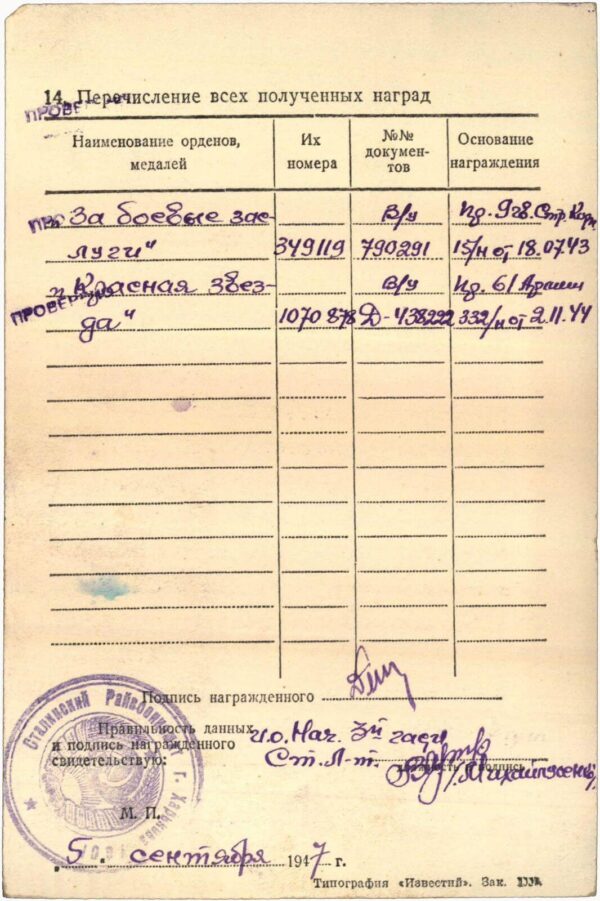 14. Перечисление всех полученных наград
Наименование орденов, медалей
Их номера
№№ докумен-тов
Основание награждения
„За боевые зас- В/у Пр. 9 гв. Стр. Кор.
луги" 349119 790291 15/н от 18.07.43
„Красная звез- В/у Пр. 61 Армии
ПРОВЕРЕНО
да" 1070878 Д-438222 332/н от 2.11.44
Подпись награжденного
Правильность данных и.о. Нач. 3й части
и подпись награжденного Ст. Л-т.
свидетельствую:
Сталинский Райвоенкомат г. Харькова
М. П.
„5" сентября 1947 г.
Типография «Известий». Зак.